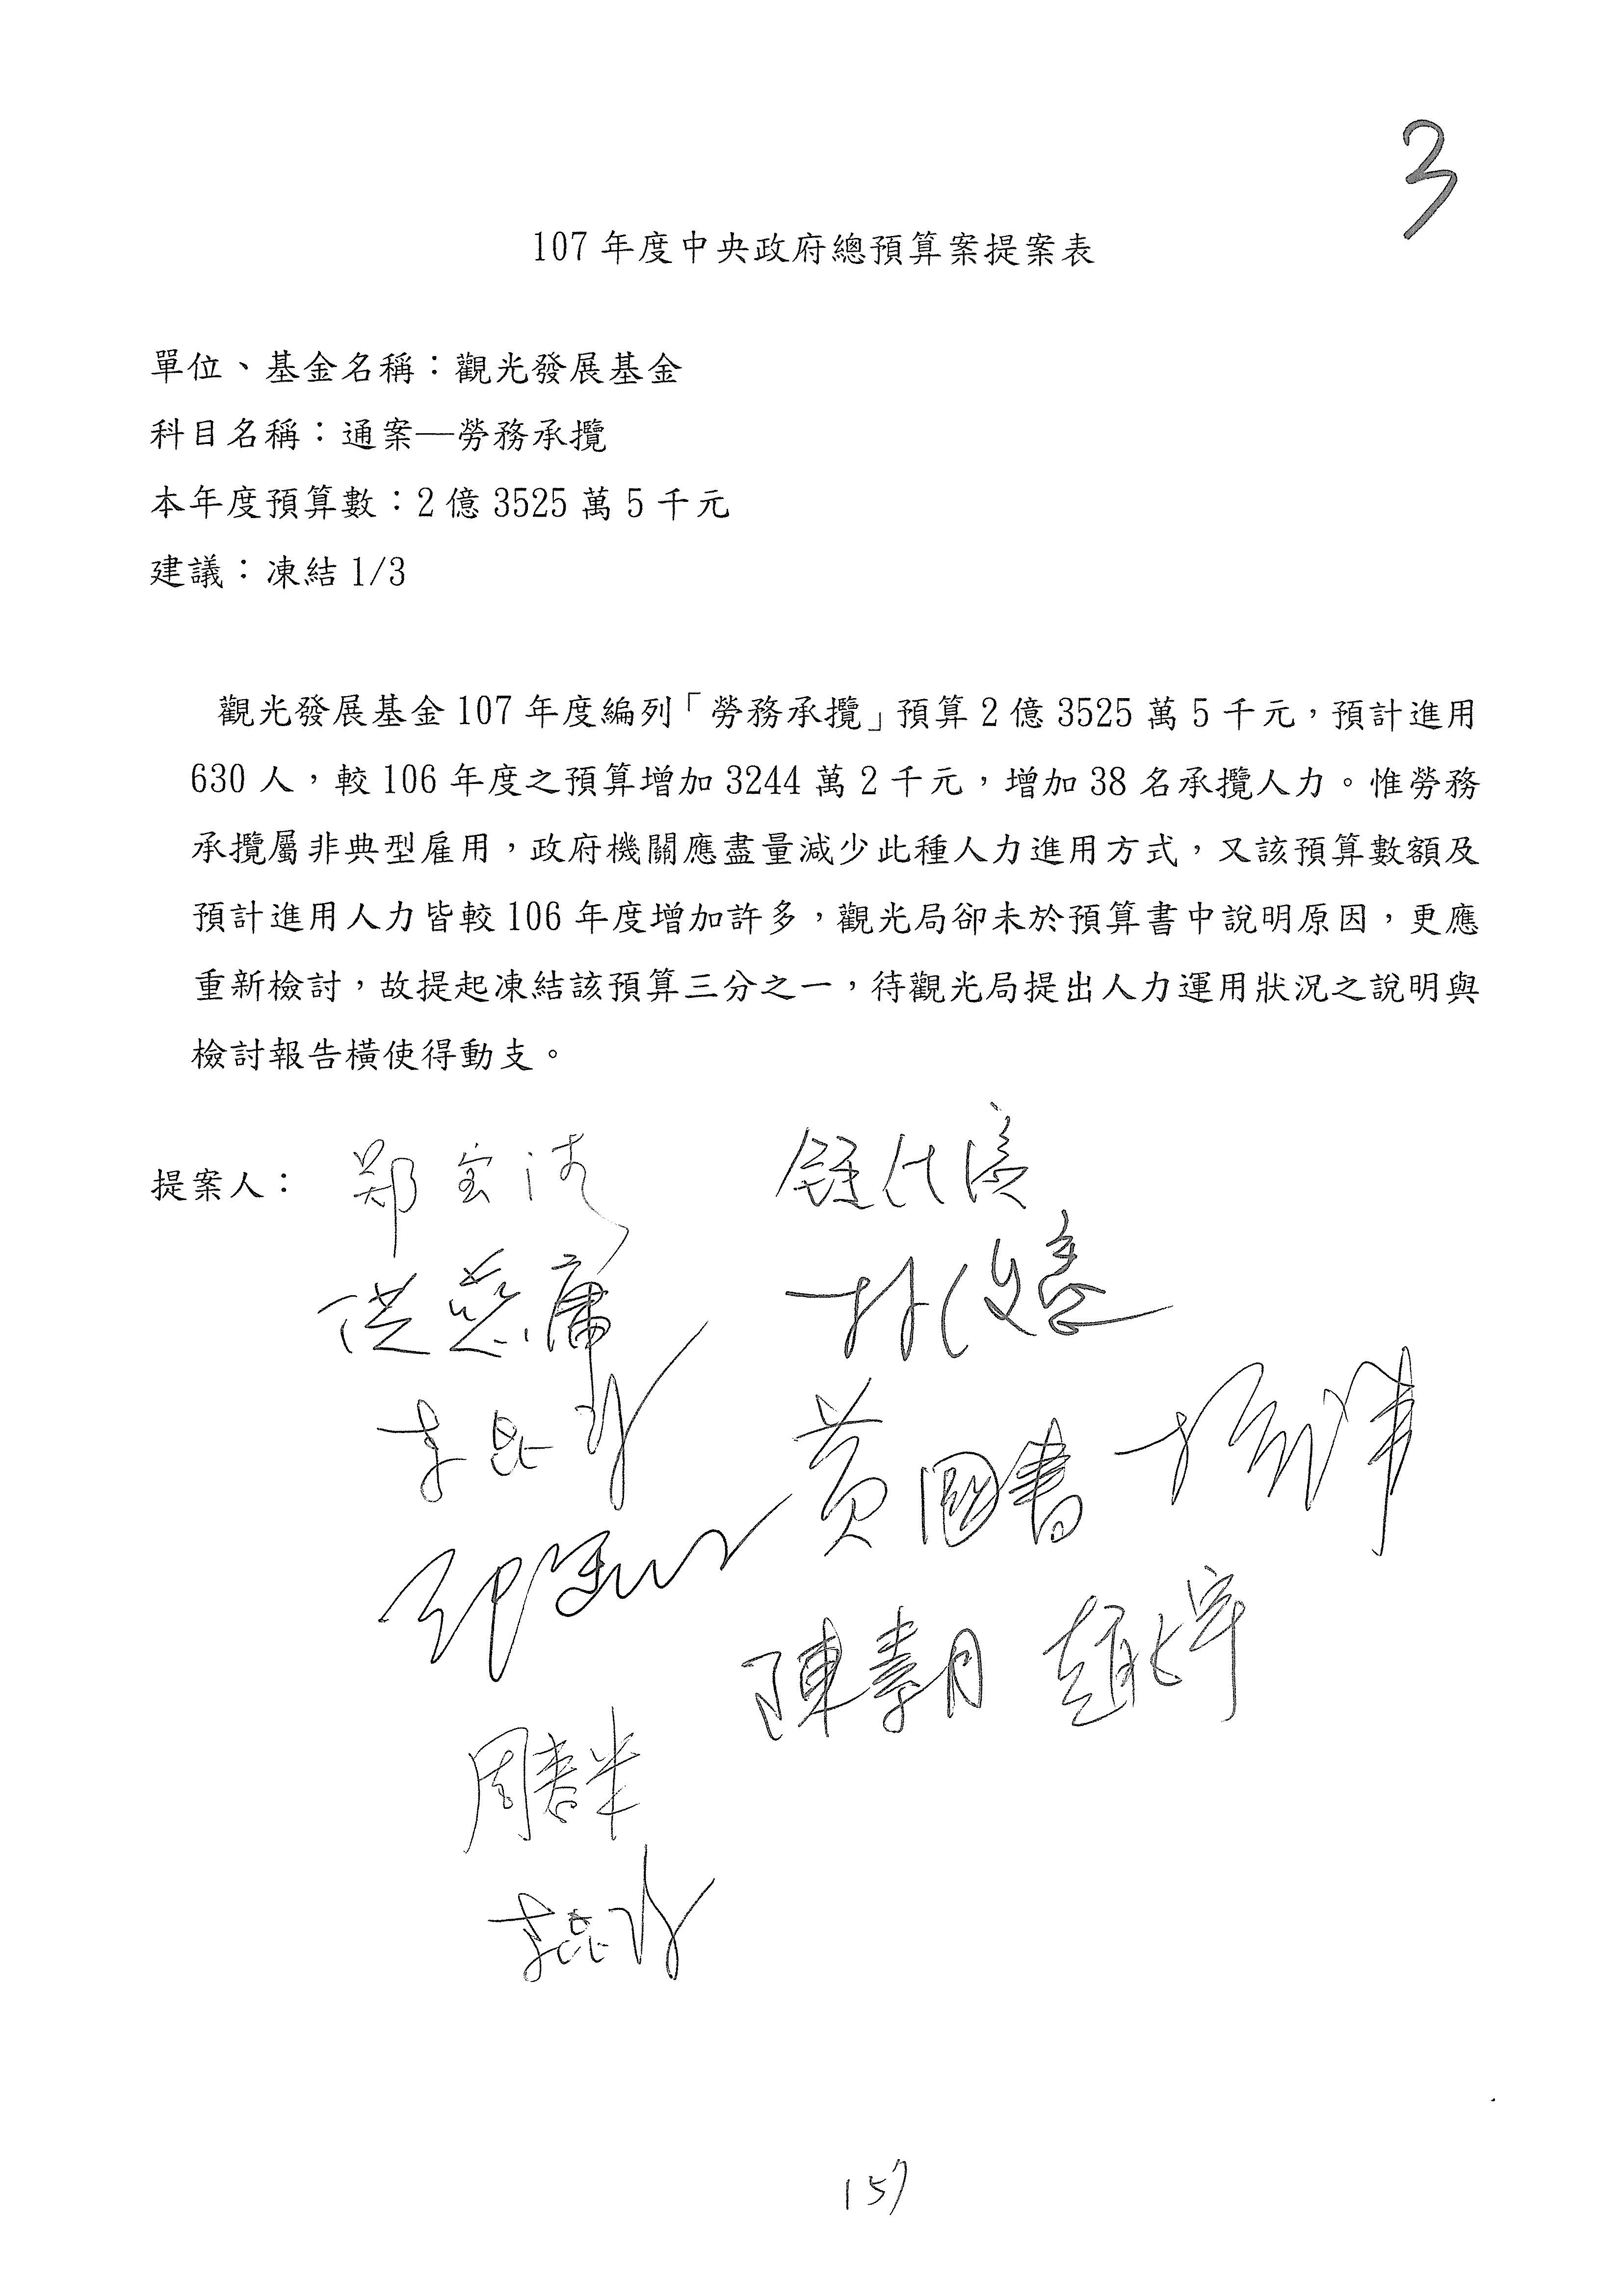 3
107 年度中央政府總預算案提案表
單位、基金名稱：觀光發展基金
科目名稱：通案—勞務承攬
本年度預算數：2 億 3525 萬 5 千元
建議：凍結 1/3
觀光發展基金 107 年度編列「勞務承攬」預算 2 億 3525 萬 5 千元，預計進用
630 人，較 106 年度之預算增加 3244 萬 2 千元，增加 38 名承攬人力。惟勞務
承攬屬非典型雇用，政府機關應盡量減少此種人力進用方式，又該預算數額及
預計進用人力皆較 106 年度增加許多，觀光局卻未於預算書中說明原因，更應
重新檢討，故提起凍結該預算三分之一，待觀光局提出人力運用狀況之說明與
檢討報告橫使得動支。
提案人：鄭宝清
洪慈庸 林俊憲
李昆澤 黃國書
陳素月 趙正宇
李昆澤
157